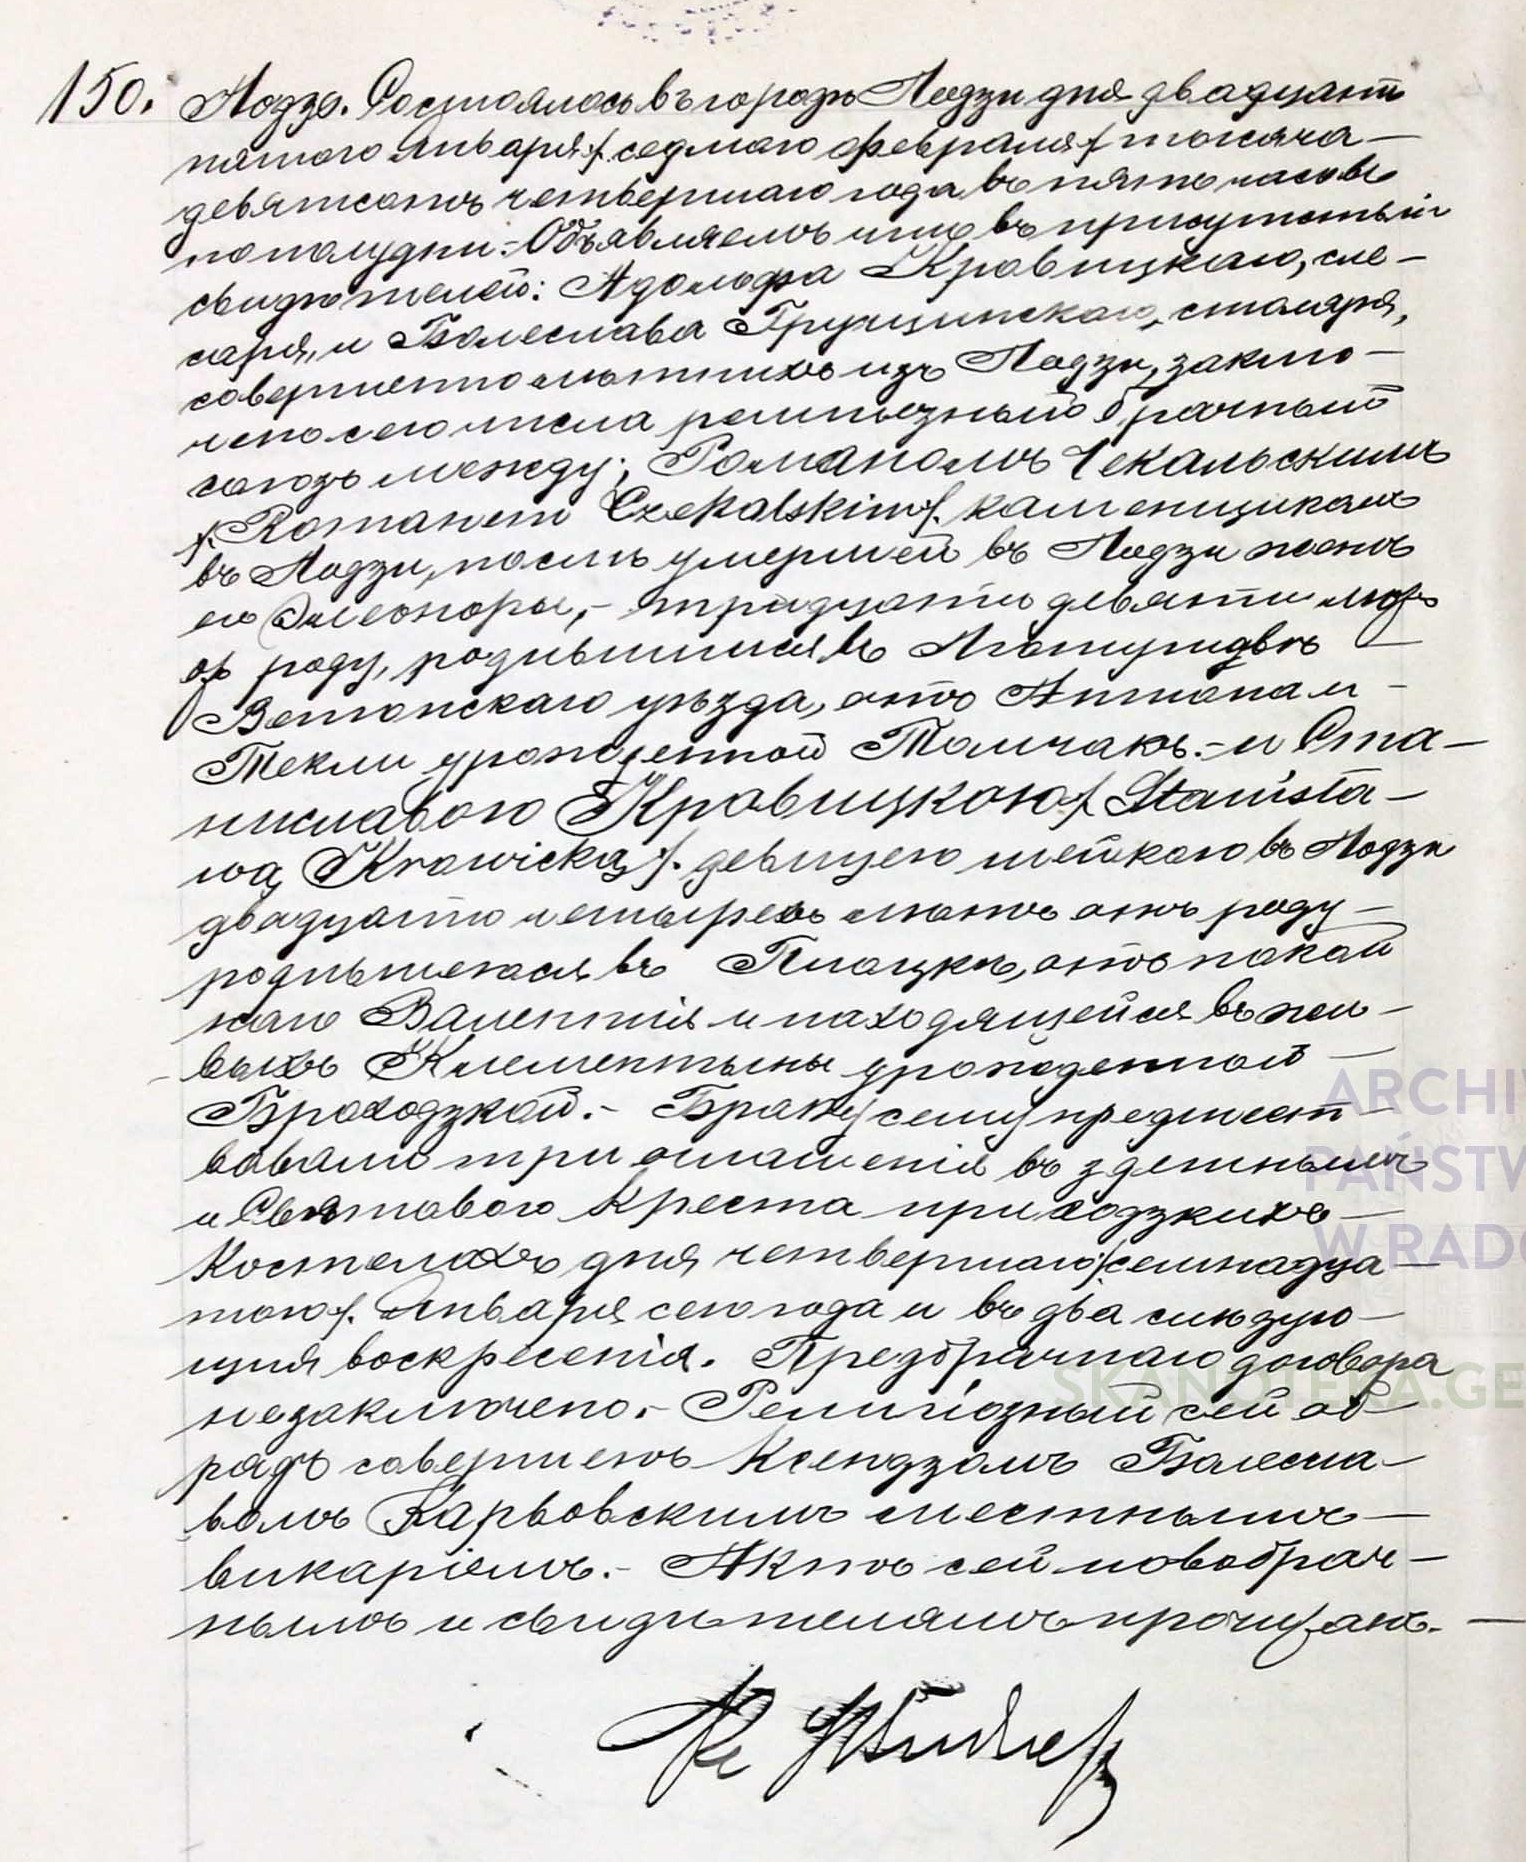 150. Лодзь. Состоялось въ городѣ Лодзи дня двадцать
пятого Января /: седмаго февраля :/ тысяча
девятсотъ четвертаго года въ пять часовъ
по полудни. - Объявляемъ что въ присутствіи
свидѣтелей: Адольфа Кравицкаго, сле-
саря, и Болеслава Грущинскаго, столяра,
совершеннолѣтнихъ изъ Лодзи, заклю-
чено сего числа религіозный брачный
союзъ между: Романомъ Чекальскимъ
/: Romanem Czekalskim :/. каменщикомъ
въ Лодзи, послѣ умершей въ Лодзи женѣ
его Элеоноры, - тридцати девяти лѣтъ
отъ роду, родившимся въ
скаго уѣзда, отъ Антона и
Текли урожденной Томчакъ. - и Ста-
ниславою Кравицкою /: Stanisła-
wą Krawicką :/. дѣвицею швейкою въ Лодзи
двадцати четырехъ лѣтъ отъ роду
родившеюся въ Плоцкѣ, отъ покой
наго Валентія и находящейся въ жи-
выхъ Клементыны урожденной
Броходзкой. - Браку сему предшест-
вовали три оглашенія въ здешнымъ
и Святового Креста приходзкихъ
Костелахъ дня четвертаго /: семнадца
того :/. Января сего года и въ два слѣдую-
щія воскресенія. Предбрачнаго договора
незаключено. - Религіозный сей об-
рядъ совершенъ Ксендзомъ Болесла-
вомъ Карвовскимъ местнымъ
викаріемъ. - Актъ сей новобрач-
нымъ и свидѣтелямъ прочитанъ. -